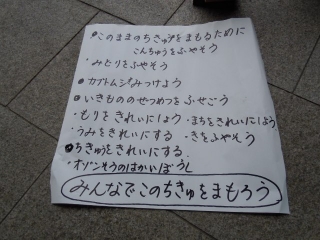 ●このままのちきゅうをまもるために
こんちゅうをふやそう
・みどりをふやそう
●カブトムシみつけよう
●いきもののせつめつをふせごう
・もりをきれいにしよう ・まちをきれいにしよう
・うみをきれいにする ・きをふやそう
●ちきゅうをきれいにする
・オゾンそうのはかいぼうし
みんなでこのちきゅをまもろう